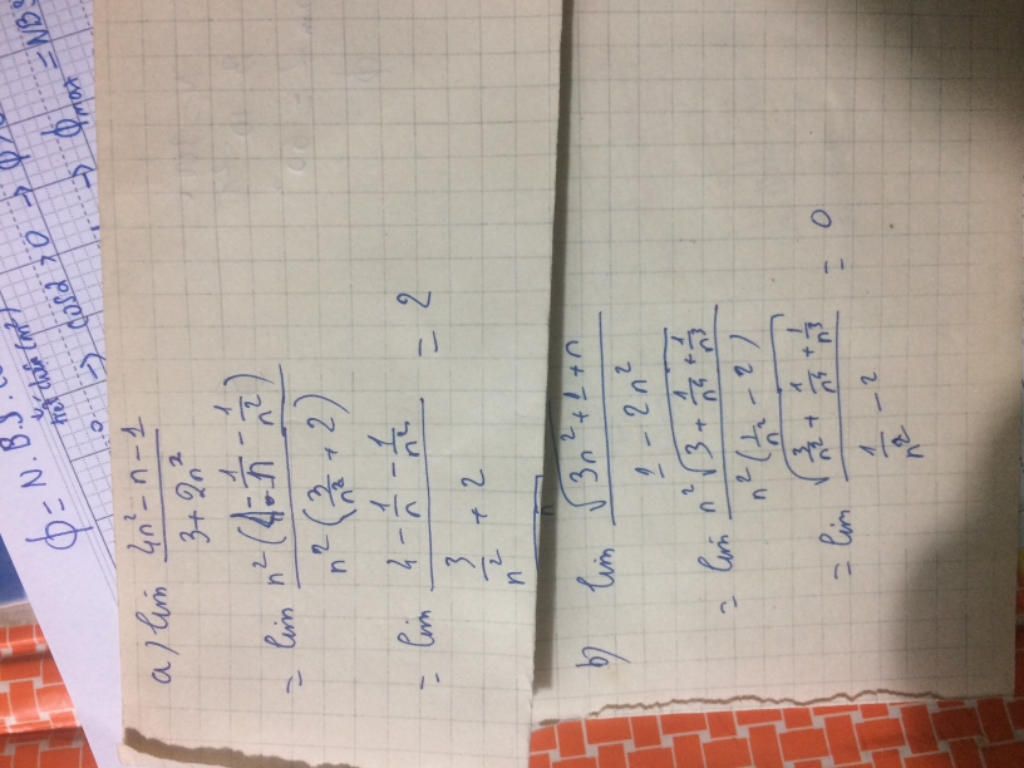 ϕ = N.B.S.
tiết diện (m²)
→ cosα > 0 → ϕmax = NBS
a) lim (4n² - n - 1)/(3 + 2n²)
= lim n²(4 - 1/n - 1/n²)/n²(3/n² + 2)
= lim (4 - 1/n - 1/n²)/(3/n² + 2) = 2
b) lim √(3n² + 1 + n)/(1 - 2n²)
= lim n²√(3 + 1/n⁴ + 1/n³)/n²(1/n² - 2)
= lim √(3/n² + 1/n⁴ + 1/n³)/(1/n² - 2) = 0